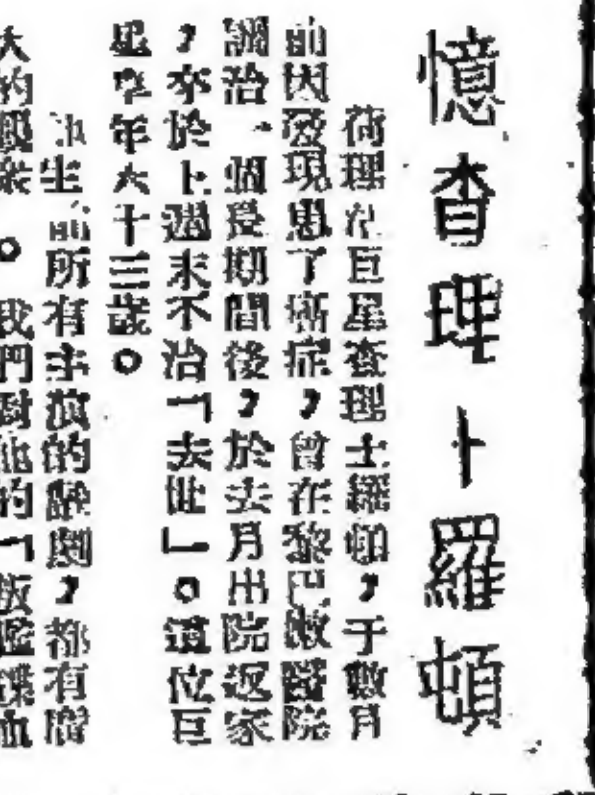 憶查理卜羅頓
荷理活巨星查理士羅頓，于數月
前因發現患了癌症，曾在黎巴嫩醫院
調治一個長期間後，於去月出院返家
，卒於上週末不治「去世」。這位巨
星享年六十三歲。
他生前所有主演的影劇，都有廣
大的觀衆。我們對他的「叛艦喋血